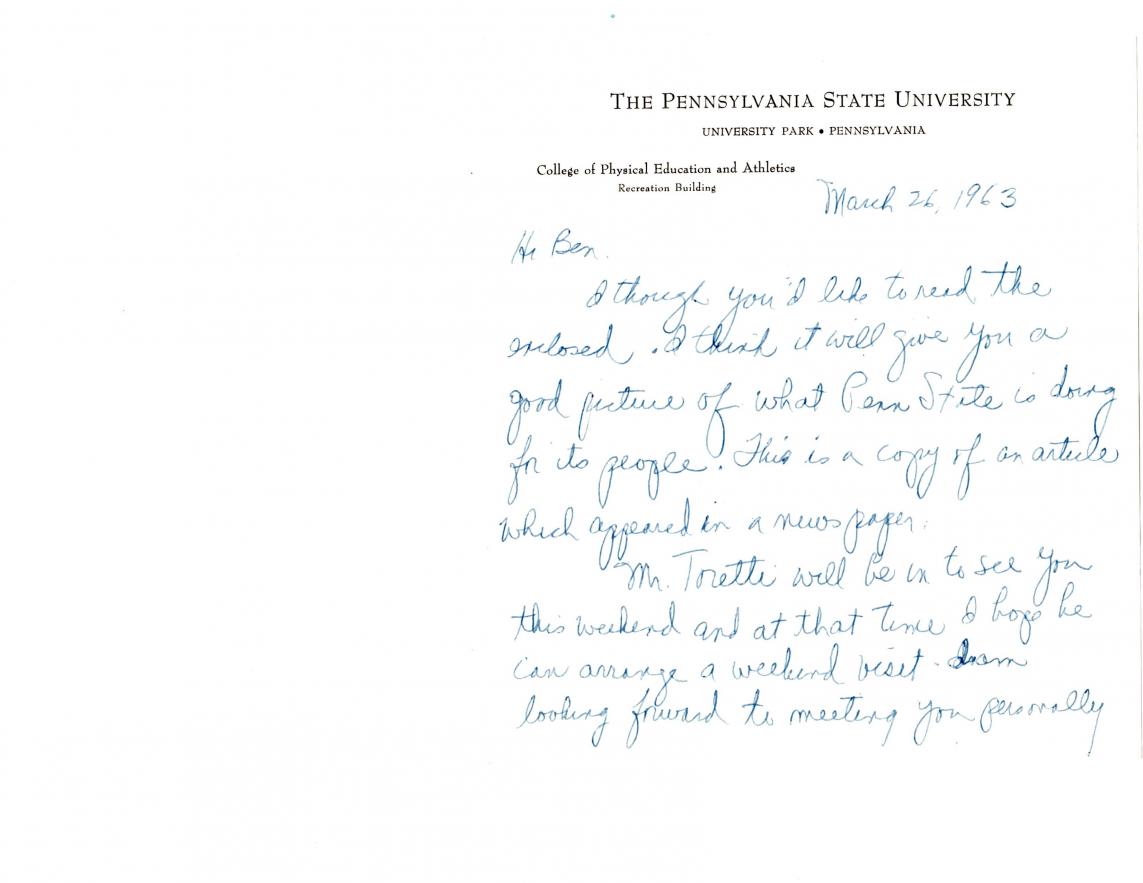 THE PENNSYLVANIA STATE UNIVERSITY
UNIVERSITY PARK • PENNSYLVANIA
College of Physical Education and Athletics
Recreation Building
March 26, 1963
Hi Ben.
I though you'd like to read the
enclosed. I think it will give you a
good picture of what Penn State is doing
for its people. This is a copy of an article
which appeared in a newspaper.
Mr. Toretti will be in to see you
this weekend and at that time I hope he
can arrange a weekend visit. I am
looking forward to meeting you personally